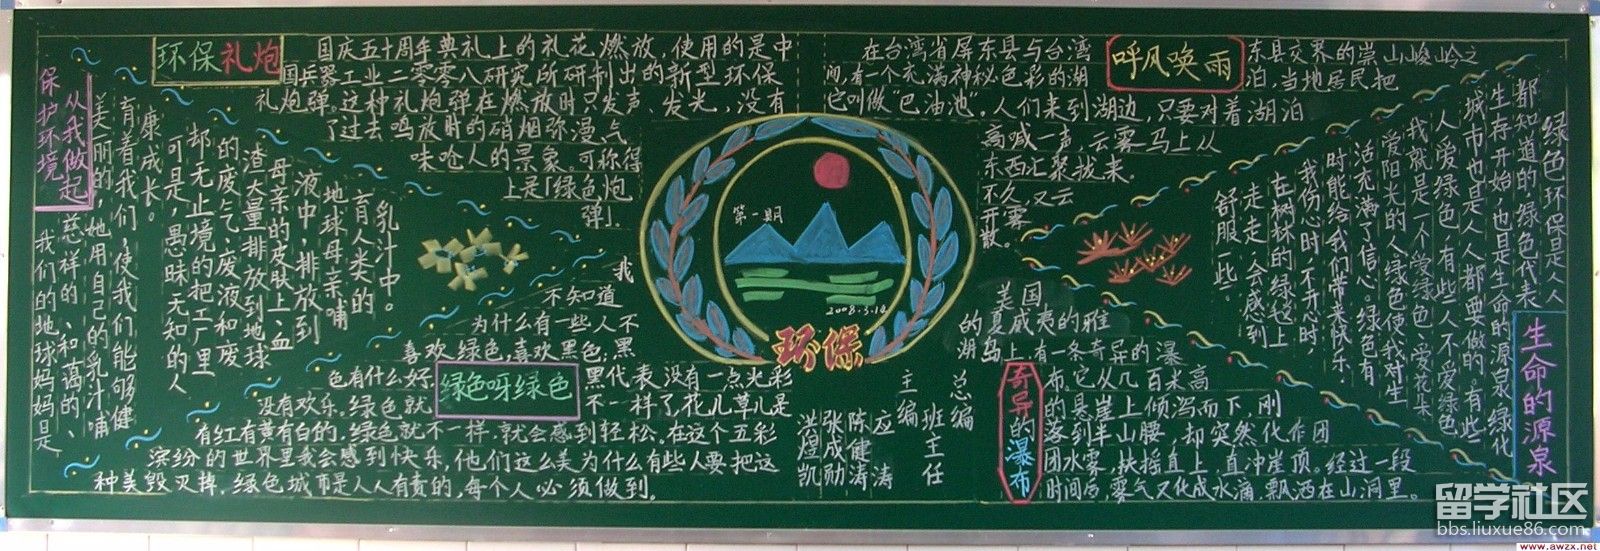 保护环境
从我做起
我们的地球妈妈是
美丽的、慈祥的、和蔼的、
她用自己的乳汁哺
育着我们,使我们能够健
康成长。
可是,愚昧无知的人
却无止境的把工厂里
的废气、废液和废
渣大量排放到地球
母亲的皮肤上、血
液中,排放到
地球母亲哺
育人类的
乳汁中。
环保礼炮
国庆五十周年典礼上的礼花燃放,使用的是中
国兵器工业二零零八研究所研制出的新型环保
礼炮弹。这种礼炮弹在燃放时只发声、发光,没有
了过去鸣放时的硝烟弥漫气
味呛人的景象。可称得
上是「绿色炮
弹」
呼风唤雨
在台湾省屏东县与台湾
东县交界的崇山峻岭之
间,有一个充满神秘色彩的湖
泊,当地居民把
它叫做"巴油池"。人们来到湖边,只要对着湖泊
高喊一声,云雾马上从
东西汇聚拢来。
不久,又云
开雾
散。
绿色呀绿色
我
不知道
为什么有一些人不
喜欢绿色,喜欢黑色;黑
色有什么好
黑代表没有一点光彩
没有欢乐。绿色就
不一样了,花儿草儿是
有红有黄有白的,绿色就不一样,就会感到轻松。在这个五彩
缤纷的世界里我会感到快乐,他们这么美为什么有些人要把这
种美毁灭掉。绿色城市是人人有责的,每个人必须做到。
第一期
2008.3.14
环保
总编
班主任
主编
应涛
陈健涛
张成勋
洪煜凯
奇异的瀑布
美国
的夏威夷的雅
湖岛上有一条奇异的瀑
布。它从几百米高
的悬崖上倾泻而下,刚
落到半山腰,却突然化作团
团水雾,扶摇直上,直冲崖顶。经过一段
时间后,雾气又化成水滴,飘洒在山洞里。
生命的源泉
绿色环保是人人
都知道的,绿色代表
生存开始,也是生命的源泉,绿化
城市也是人人都要做的。有些
人爱绿色,有些人不爱绿色
我就是一个爱绿色、爱花朵
爱阳光的人,绿色使我对生
活充满了信心。绿色有
时能给我们带来快乐,
我伤心时、不开心时,
在树林的绿轻上
走一走,会感到
舒服一些。
留学社区
bbs.liuxue86.com
www.awzx.net